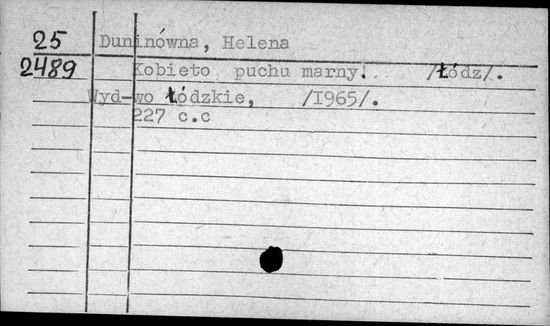 25
2489
Duninówna, Helena
Kobieto puchu marny!.. /Łódz/.
Wyd-wo Łódzkie, /1965/.
227 c.c